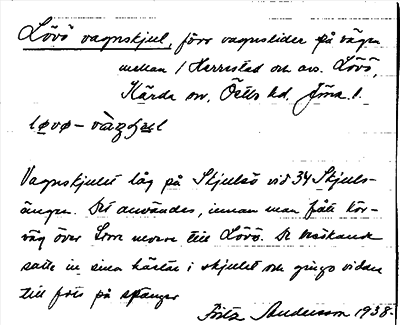 Lövö vagnskjul, förr vagnslider på vägen
mellan / Herrestad och avs. Lövö,
Kärda sn, Östbo hd. Jöns. l.
løvø – vàgnʃʉl
Vagnskjulet låg på Skjulsö vid 34 Skjuls-
ängen. Det användes, innan man fått kör-
väg över mossen till Lövö. De besökande
satte in sina hästar i skjulet och gingo vidare
till fots på spänger
Andersson 1938.